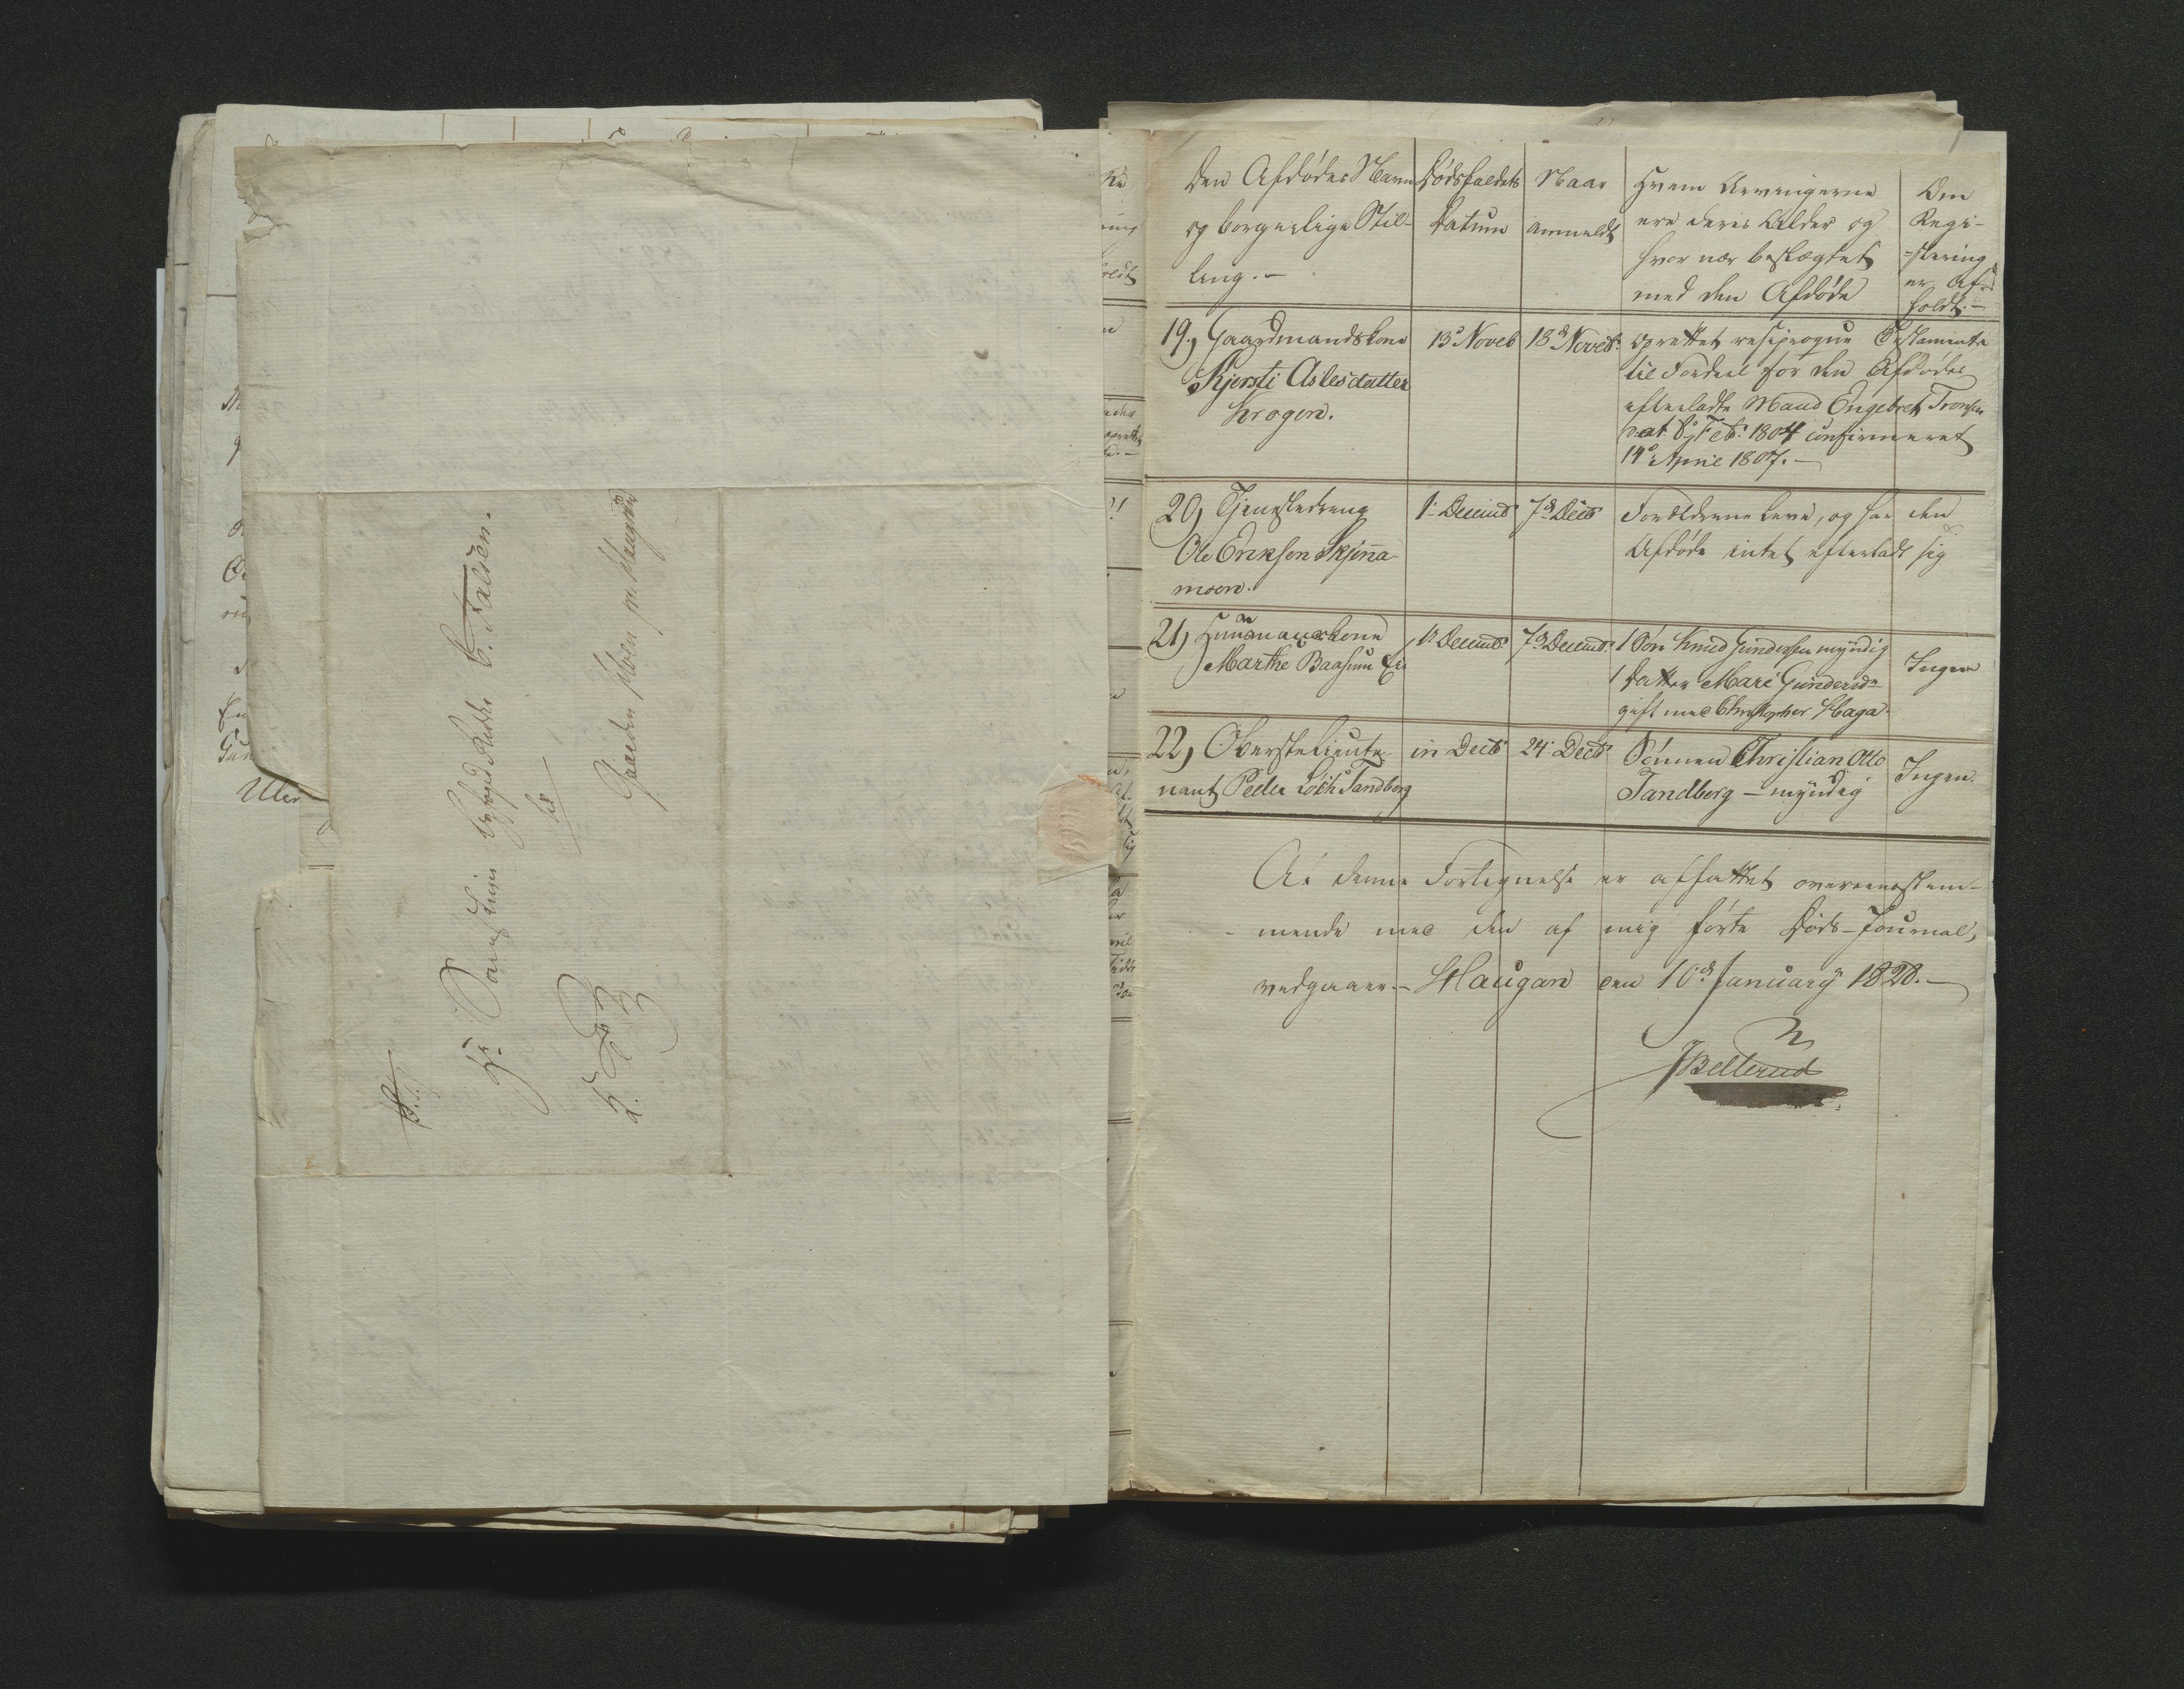 S: T:
Hr. Sorenskriver C. Falsen.
til
Gaarden Moen pr. Haugsund
Uler
Den Afdødes Navn
og borgerlige Stil-
ling.-
Dødsfaldets
Datum
Naar
anmeldt
Hvem Arvingerne
ere deres Alder og
hvor nær beslægtet
med den Afdøde
Om
Regi-
=strering
er Af-
holdt.-
19, Gaardmandskone
Kjersti Aslesdatter
Krogen.
13d Noveb
18d Noveb:
oprettet resiproque Testamente
til Fordeel for den Afdødes
efterladte Mand Engebret Tronsen
dat. 8d Feb: 1804 confirmeret
14d April 1807.-
20, Tjenestedreng
Ole Eriksen Skjønna
moen.
1. Decemb
7d Decb
Forældrene leve, og har den
Afdøde intet efterladt sig
21, Huusmandskone
Marthe Baasum Eie
1t Decemb.
7d Decemb.
1 Søn Knud Gundersen myndig
1 Datter Mari Gundersdr
gift med Christopher Haga.
Ingen
22, Obersteliute-
nant Peder Loch Tandberg
in Decb
24. Decb
Sønnen Christian Otto
Tandberg - myndig
Ingen.
At denne Fortegnelse er affattet overeenstem-
mende med den af mig førte Døds-Journal,
vedgaaes.- Haugan den 10d January 1828.-
JBellerud